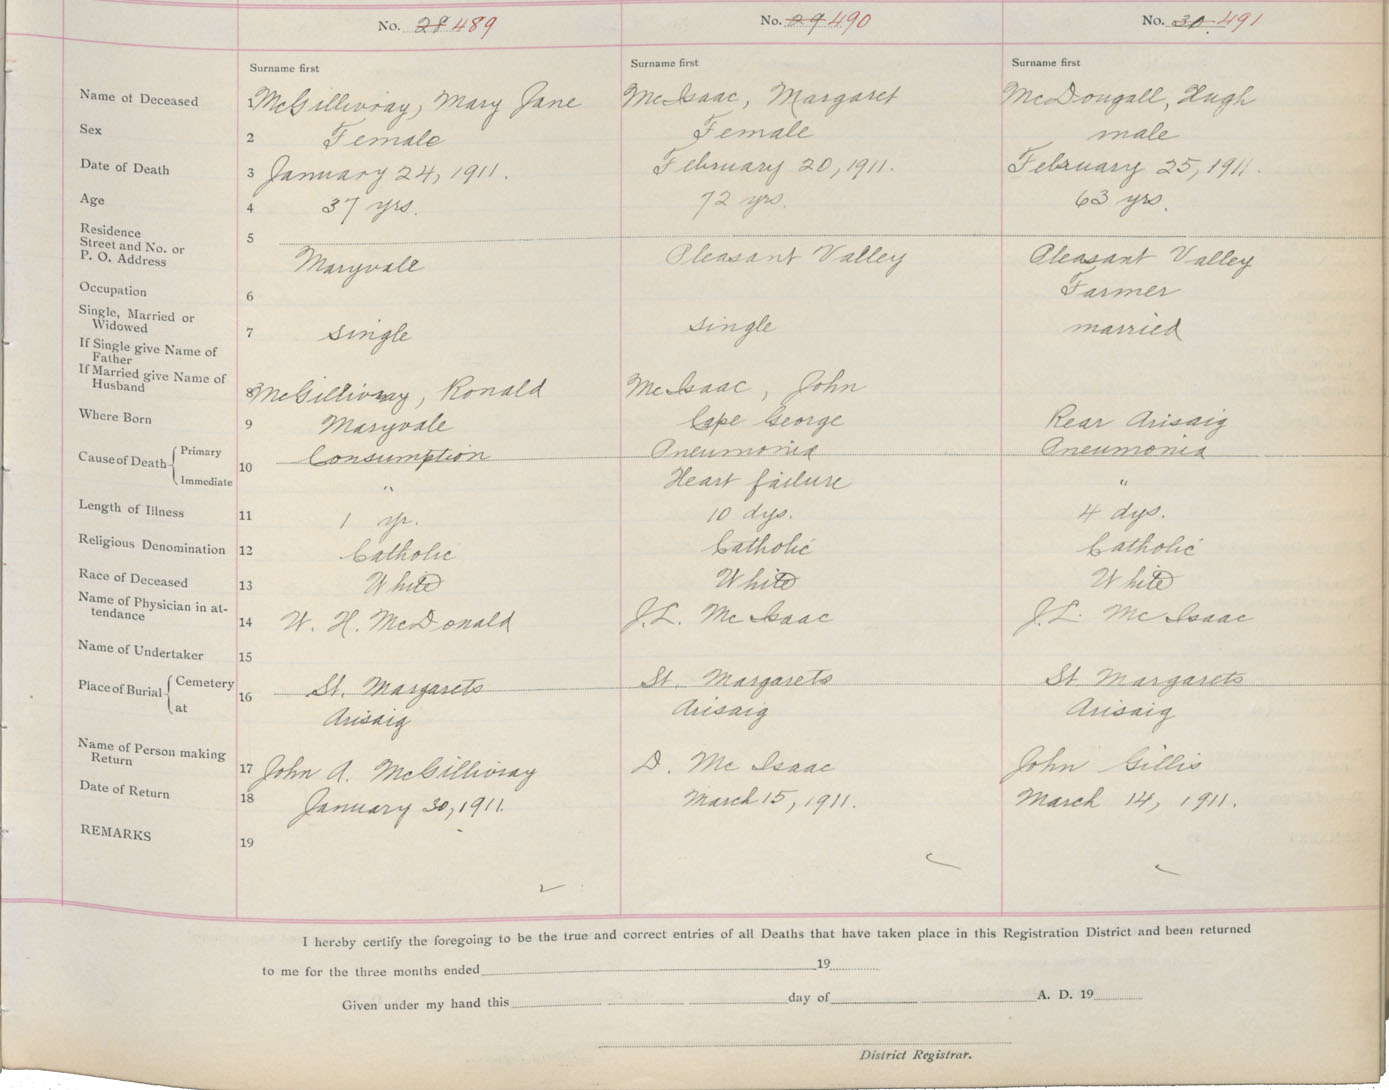 No. 28 489 No. 29 490 No. 30. 491
Surname first Surname first Surname first
Name of Deceased 1 McGillivray, Mary Jane McIsaac, Margaret McDougall, Hugh
Sex 2 Female Female male
Date of Death 3 January 24, 1911. February 20, 1911. February 25, 1911.
Age 4 37 yrs. 72 yrs. 63 yrs.
Residence 5
Street and No. or
P. O. Address Maryvale Pleasant Valley Pleasant Valley
Occupation 6 Farmer
Single, Married or
Widowed 7 single single married
If Single give Name of
Father
If Married give Name of
Husband 8 McGillivray, Ronald McIsaac, John
Where Born 9 Maryvale Cape George Rear Arisaig
Cause of Death Primary 10 Consumption Pneumonia Pneumonia
Immediate " Heart failure "
Length of Illness 11 1 yr. 10 dys. 4 dys.
Religious Denomination 12 Catholic Catholic Catholic
Race of Deceased 13 White White White
Name of Physician in at-
tendance 14 W. H. McDonald J.L. McIsaac J.L. McIsaac
Name of Undertaker 15
Place of Burial Cemetery 16 St. Margarets St. Margarets St Margarets
at Arisaig Arisaig Arisaig
Name of Person making
Return 17 John A. McGillivray D. McIsaac John Gillis
Date of Return 18 January 30, 1911. March 15, 1911. March 14, 1911.
REMARKS 19
I hereby certify the foregoing to be the true and correct entries of all Deaths that have taken place in this Registration District and been returned
to me for the three months ended 19
Given under my hand this day of A. D. 19
District Registrar.